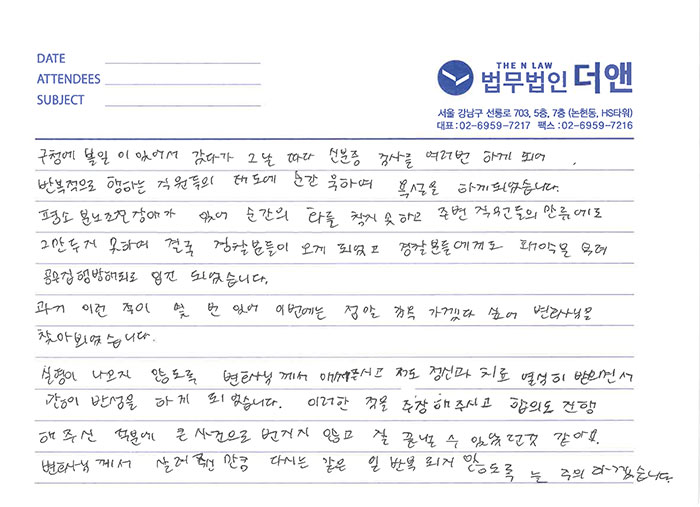 DATE
ATTENDEES
SUBJECT
THE N LAW
법무법인 더앤
서울 강남구 선릉로 703, 5층, 7층 (논현동, HS타워)
대표:02-6959-7217 팩스:02-6959-7216
구청에 볼일 이 있어서 갔다가 그 날 따라 신분증 검사를 여러번 하게 되어
반복적으로 행하는 직원들의 태도에 순간 욱하여 욕설을 하게되었습니다.
평소 분노조절장애가 있어 순간의 화를 참지 못하고 주변 직원들의 만류에도
그만두지 못하여 결국 경찰분들이 오게 되었고 경찰분들에게도 패악을 부려
공무집행방해죄로 입건 되었습니다.
과거 이런 적이 몇 번 있어 이번에는 정말 감옥 가겠다 싶어 변호사님을
찾아뵈었습니다.
실형이 나오지 않도록 변호사님 께서 애써주시고 저도 정신과 치료 열심히 받으면서
깊이 반성을 하게 되었습니다. 이러한 점을 주장해주시고 합의도 진행
해주신 덕분에 큰 사건으로 번지지 않고 잘 끝날 수 있었던것 같아요.
변호사님 께서 살려 주신 만큼 다시는 같은 일 반복 되지 않도록 늘 주의 하겠습니다